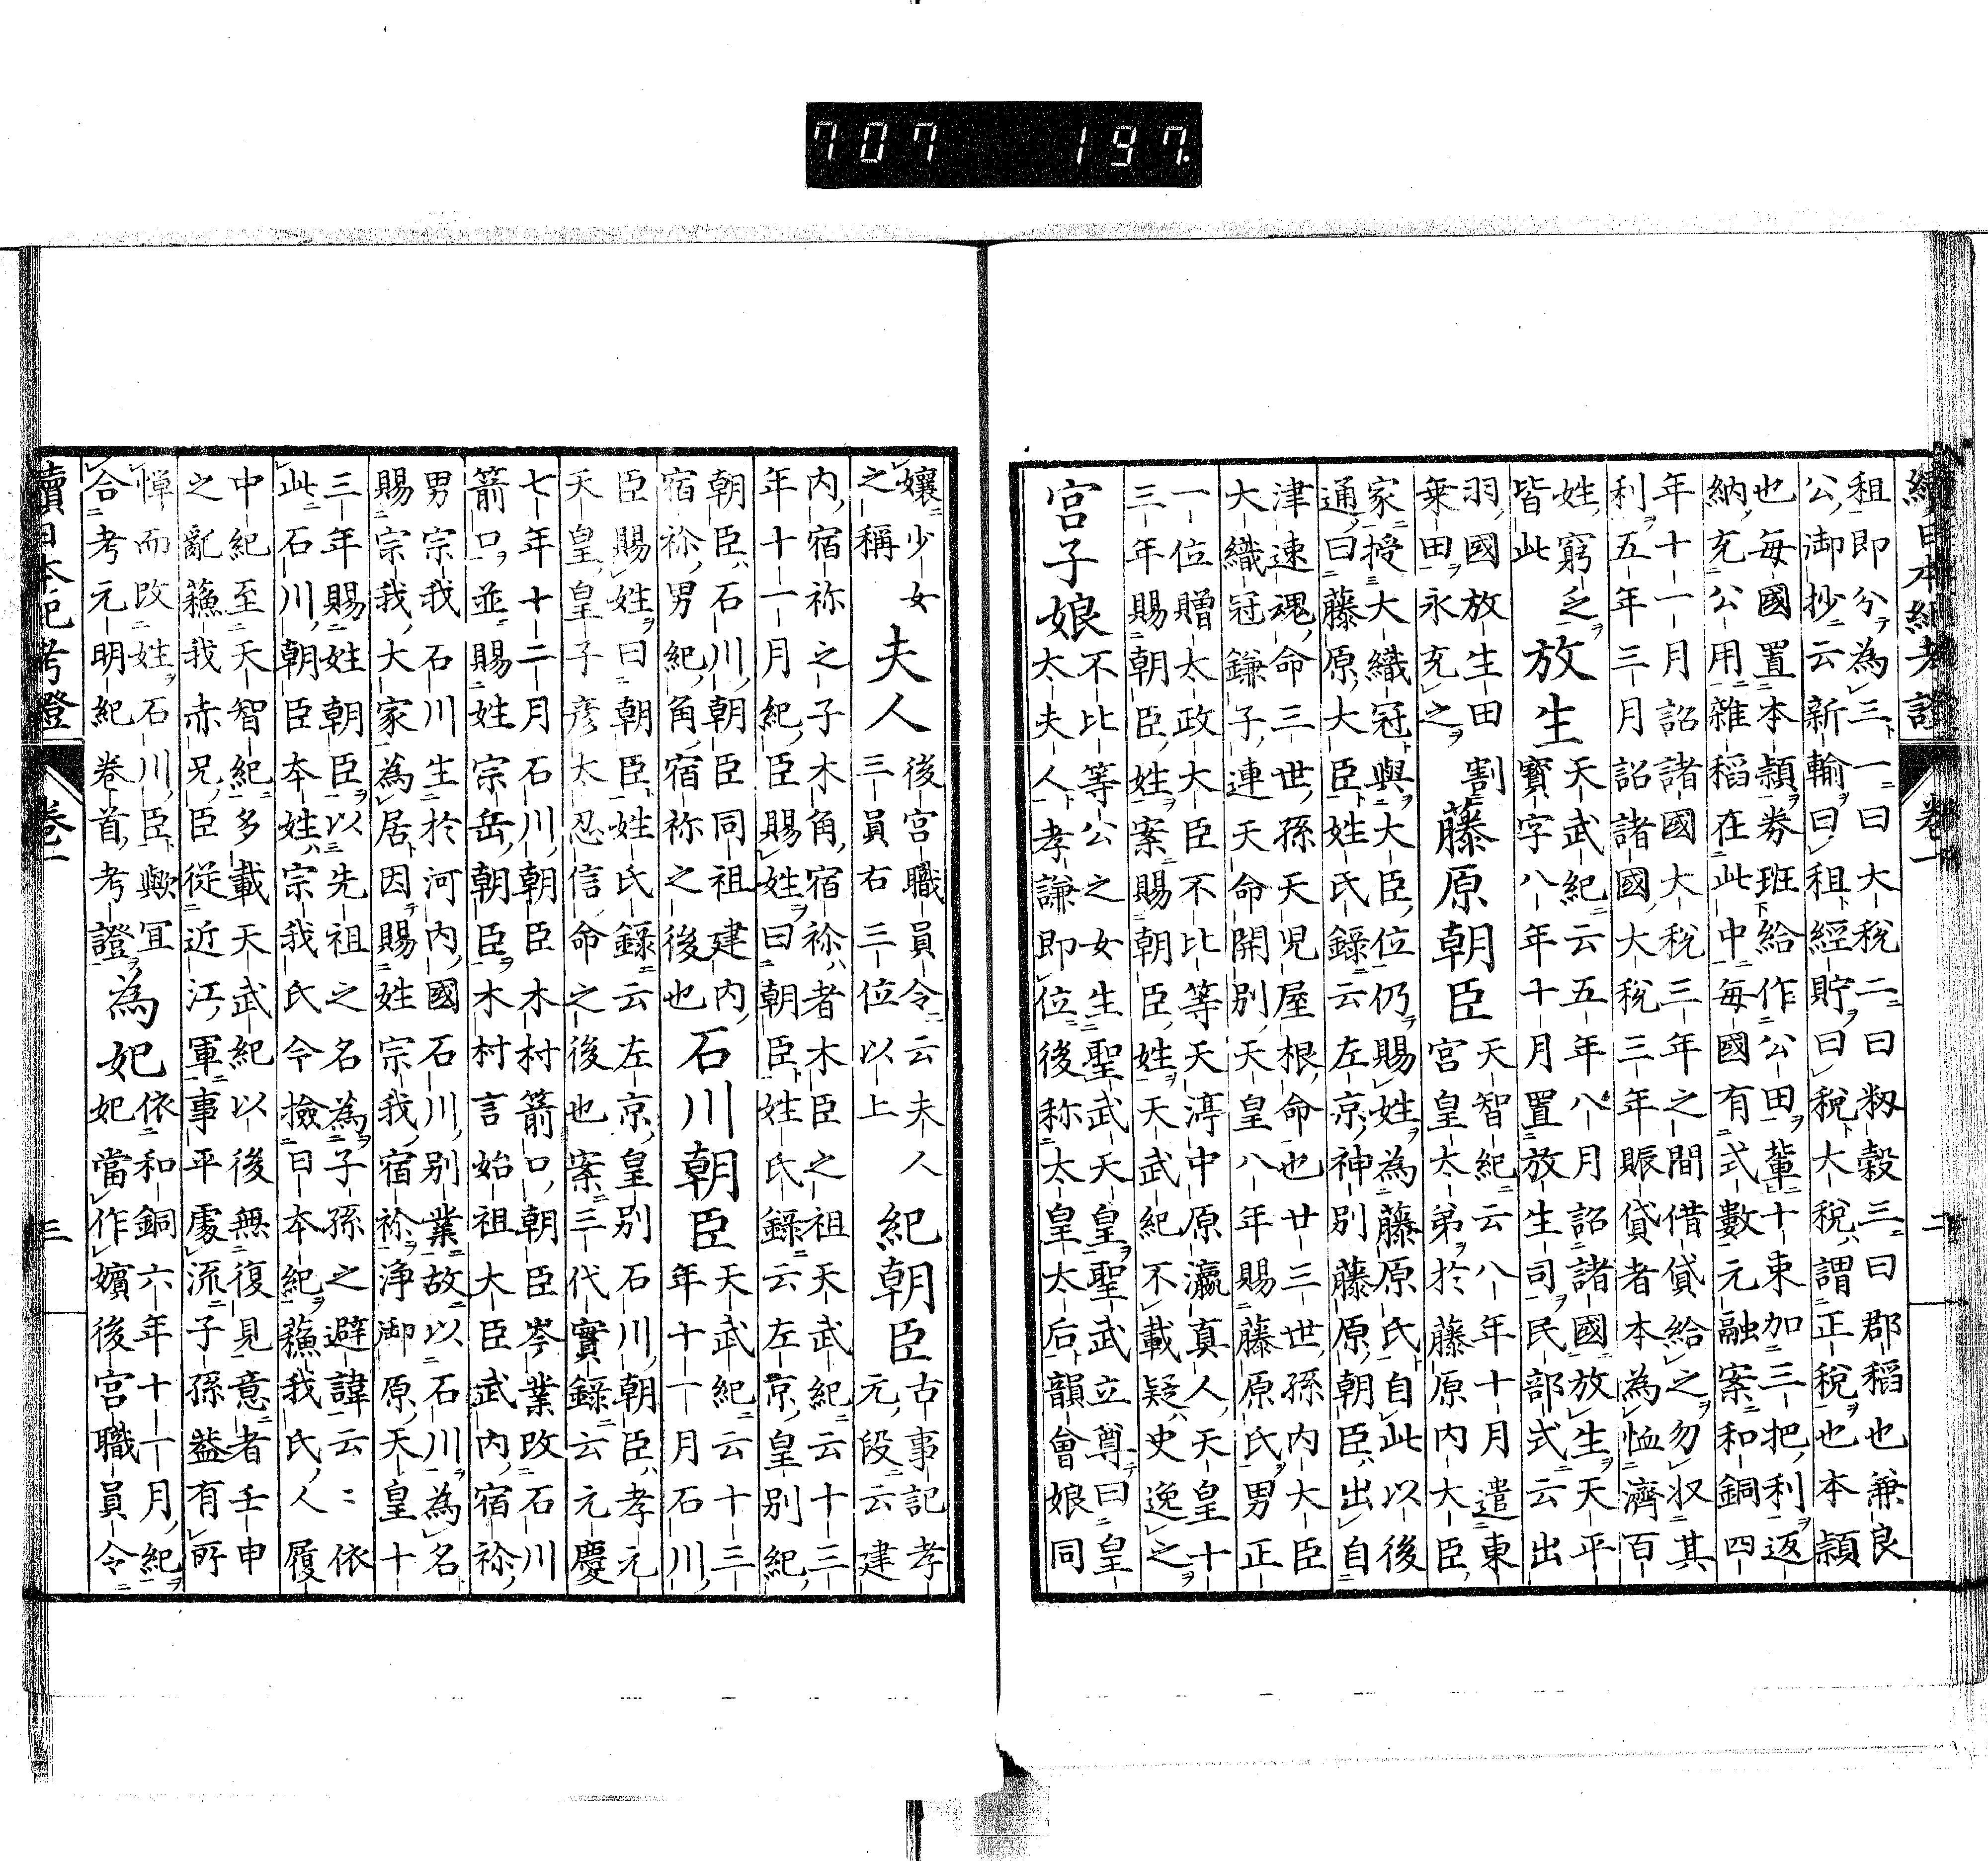 續日本紀考證 卷一 二
租即分為三一曰大税二曰籾穀三曰郡稻也兼良
公御抄云新輸曰租經貯曰税大税謂正税也本穎
也毎國置本穎券班給作公田輩十束加三把利返
納充公用雜稻在此中毎國有式數元融案和銅四
年十一月詔諸國大税三年之間借貸給之勿収其
利五年三月詔諸國大税三年賑貸者本為恤濟百
姓窮乏
皆此
放生
天武紀云五年八月詔諸國放生天平
寳字八年十月置放生司民部式云出
羽國放生田割
乗田永充之
藤原朝臣
天智紀云八年十月遣東
宮皇太弟於藤原内大臣
家授大織冠與大臣位仍賜姓為藤原氏自此以後
通曰藤原大臣姓氏録云左京神別藤原朝臣出自
津速魂命三世孫天児屋根命也廿三世孫内大臣
大織冠鎌子連天命開別天皇八年賜藤原氏男正
一位贈太政大臣不比等天渟中原瀛真人天皇十
三年賜朝臣姓案賜朝臣姓天武紀不載疑史逸之
宮子娘
不比等公之女生聖武天皇聖武立尊曰皇
太夫人孝謙即位後称太皇太后韻會娘同
孃少女
之稱
夫人
後宮職員令云夫人
三員右三位以上
紀朝臣
古事記孝
元段云建
内宿祢之子木角宿祢者木臣之祖天武紀云十三
年十一月紀臣賜姓曰朝臣姓氏録云左京皇別紀
朝臣石川朝臣同祖建内
宿祢男紀角宿祢之後也
石川朝臣
天武紀云十三
年十一月石川
臣賜姓曰朝臣姓氏録云左京皇別石川朝臣孝元
天皇皇子彦太忍信命之後也案三代實録云元慶
七年十二月石川朝臣木村箭口朝臣岑業改石川
箭口並賜姓宗岳朝臣木村言始祖大臣武内宿祢
男宗我石川生於河内國石川別業故以石川為名
賜宗我大家為居因賜姓宗我宿祢浄御原天皇十
三年賜姓朝臣以先祖之名為子孫之避諱云〻依
此石川朝臣本姓宗我氏今撿日本紀蘓我氏人履
中紀至天智紀多載天武紀以後無復見意者壬申
之亂蘓我赤兄臣従近江軍事平處流子孫葢有所
憚而改姓石川臣歟冝
合考元明紀卷首考證
為妃
依和銅六年十一月紀
妃當作嬪後宮職員令
續日本紀考證 卷一 三
707 197